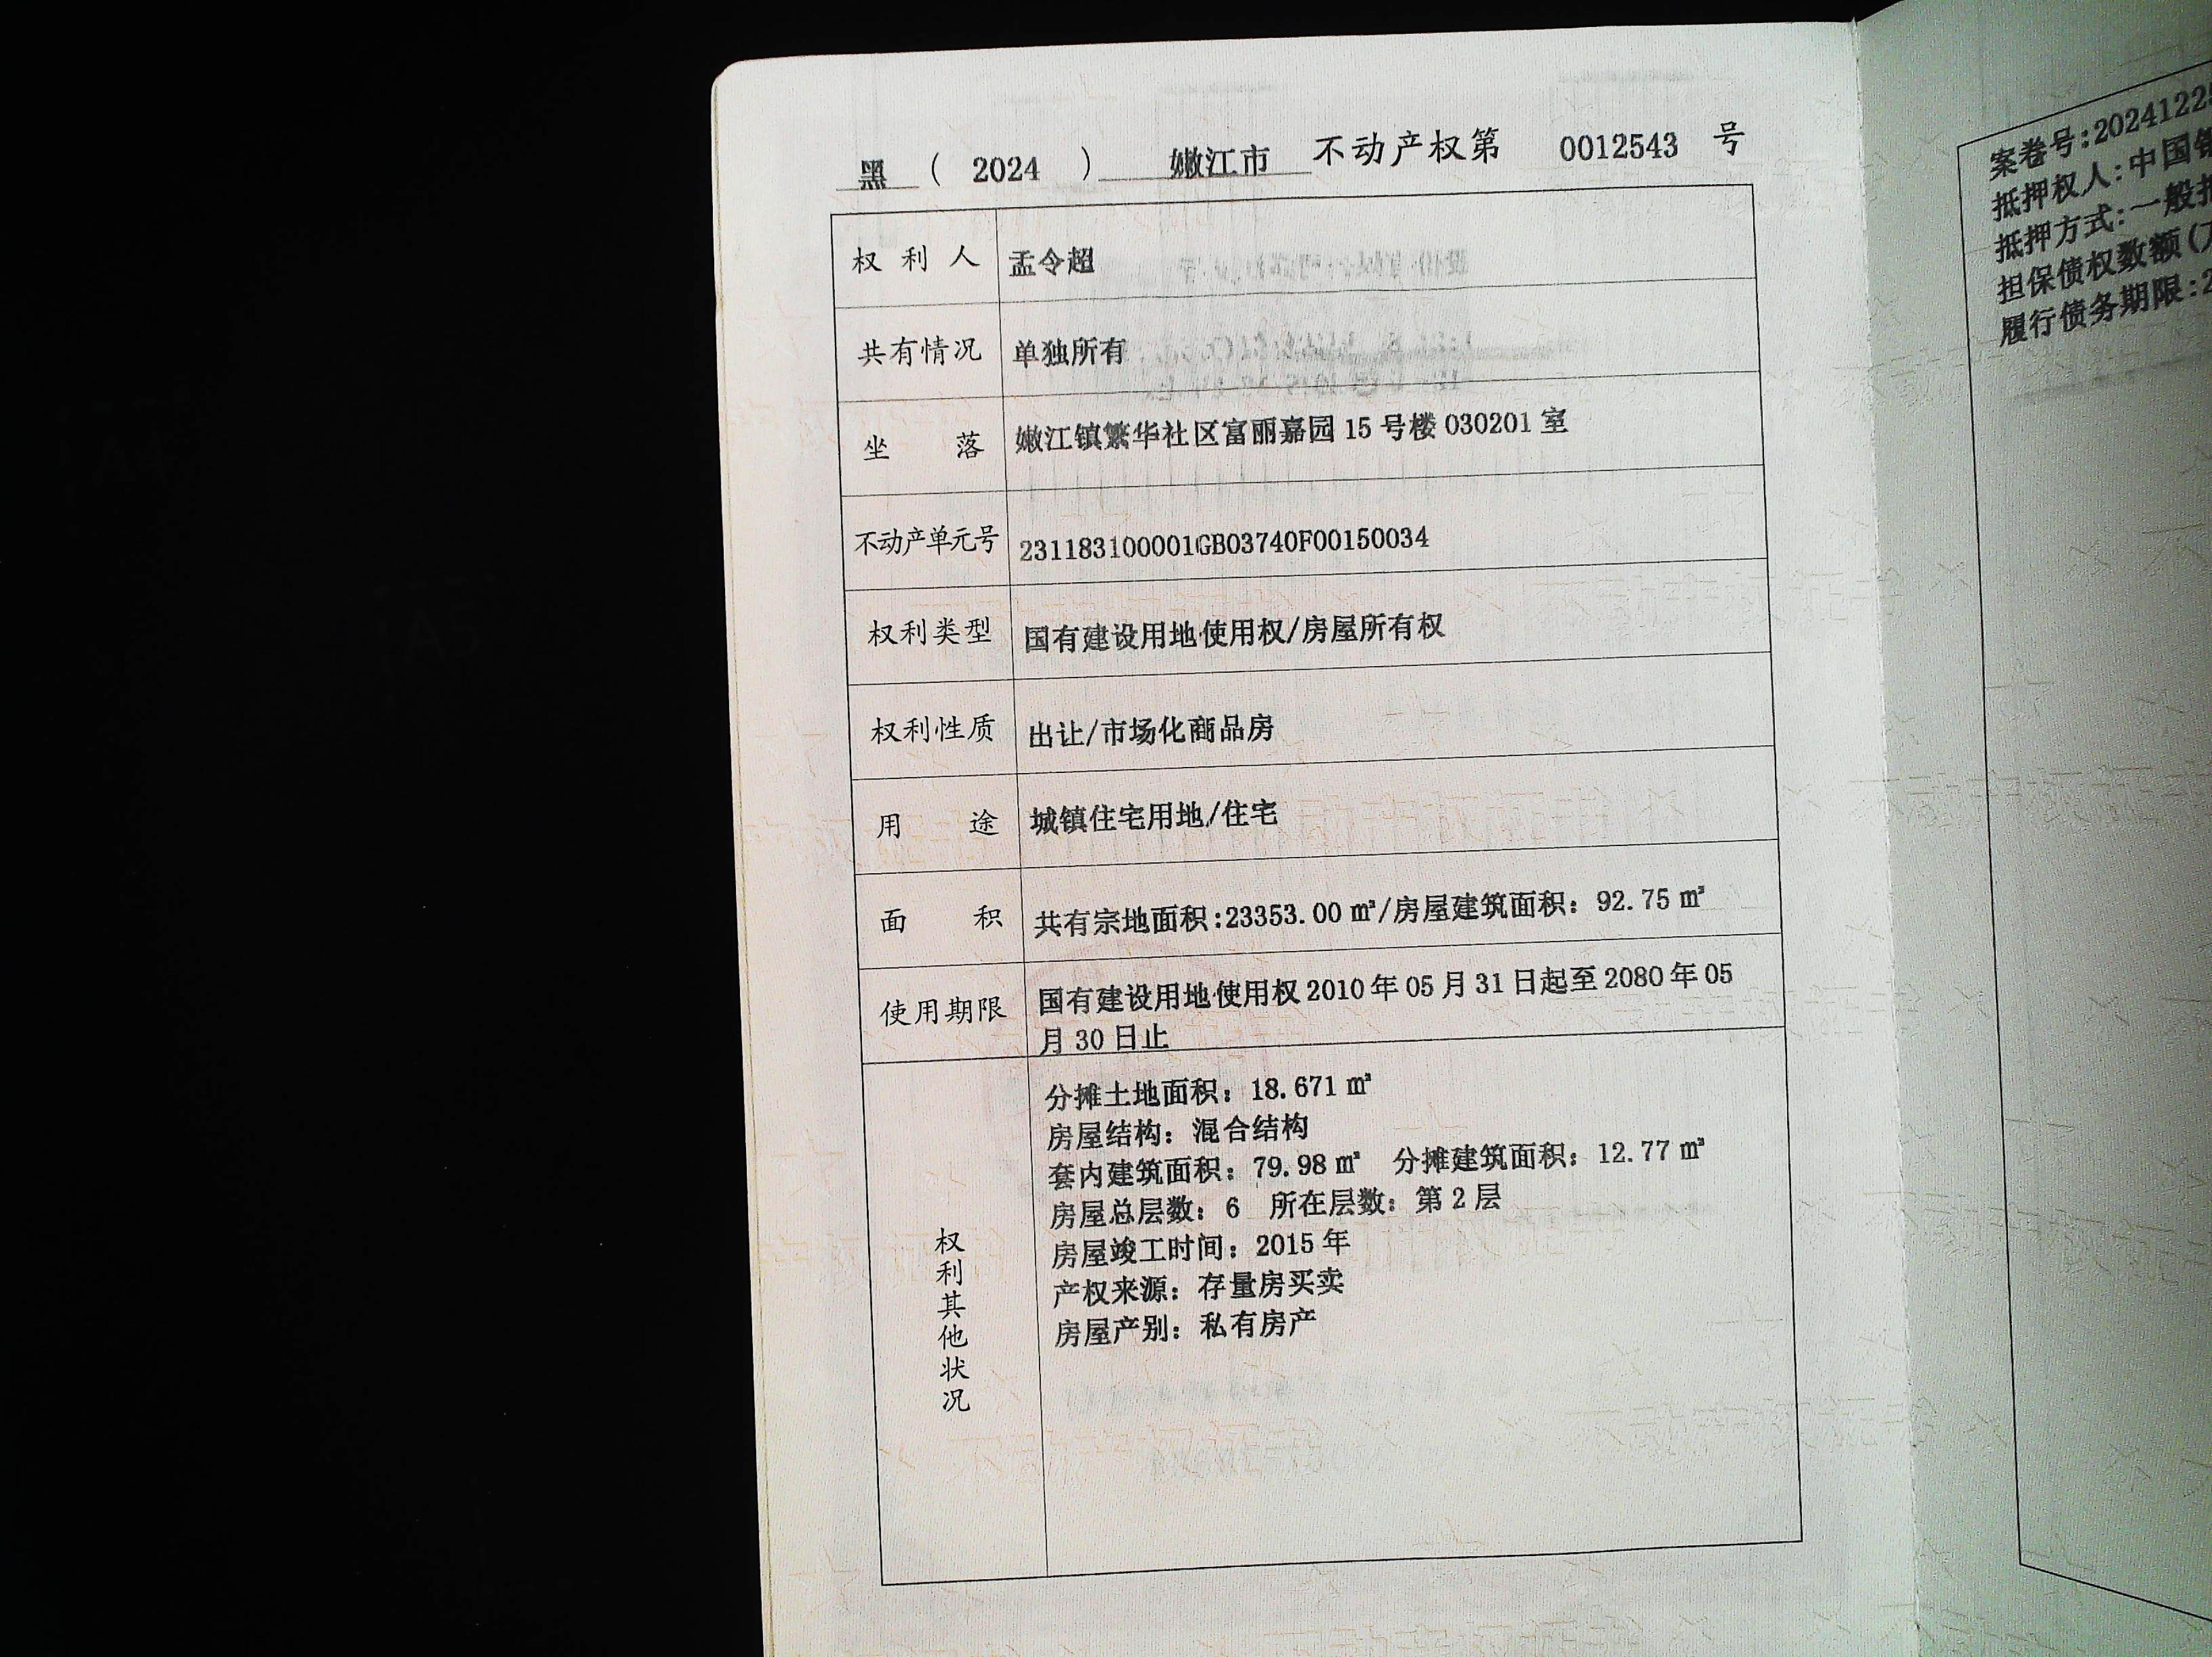 黑 ( 2024 ) 嫩江市 不动产权第 0012543 号
权利人 孟令超
共有情况 单独所有
坐落 嫩江镇繁华社区富丽嘉园 15 号楼 030201 室
不动产单元号 231183100001GB03740F00150034
权利类型 国有建设用地使用权/房屋所有权
权利性质 出让/市场化商品房
用途 城镇住宅用地/住宅
面积 共有宗地面积:23353.00 ㎡/房屋建筑面积：92.75 ㎡
使用期限 国有建设用地使用权 2010 年 05 月 31 日起至 2080 年 05
月 30 日止
权利其他状况
分摊土地面积：18.671 ㎡
房屋结构：混合结构
套内建筑面积：79.98 ㎡ 分摊建筑面积：12.77 ㎡
房屋总层数：6 所在层数：第 2 层
房屋竣工时间：2015 年
产权来源：存量房买卖
房屋产别：私有房产
案卷号:2024122
抵押权人:中国
抵押方式:一般
担保债权数额(
履行债务期限:2